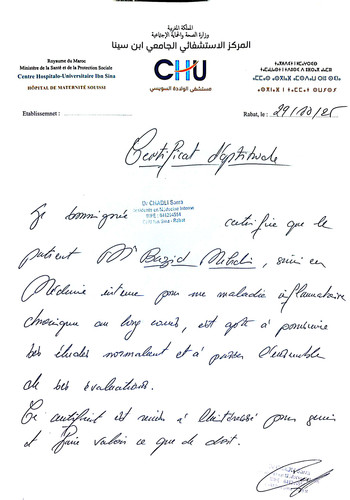 المملكة المغربية
وزارة الصحة والحماية الاجتماعية
المركز الاستشفائي الجامعي ابن سينا
Royaume du Maroc
Ministère de la Santé et de la Protection Sociale
Centre Hospitalo-Universitaire Ibn Sina
HÔPITAL DE MATERNITÉ SOUISSI
CHU
مستشفى الولادة السويسي
Etablissemnet :
Rabat, le : 29/10/25
Certificat d'aptitude
Dr CHADLI Sarra
Résidente en Médecine Interne
Je soussignée certifie que le
patient Mr Bazid , suivi en
Médecine interne pour une maladie inflammatoire
chronique au long cours, est apte à poursuivre
ses études normalement et à passer l'ensemble
de ses évaluations.
Ce certificat est remis à l'intéressé pour servir
et faire valoir ce que de droit.